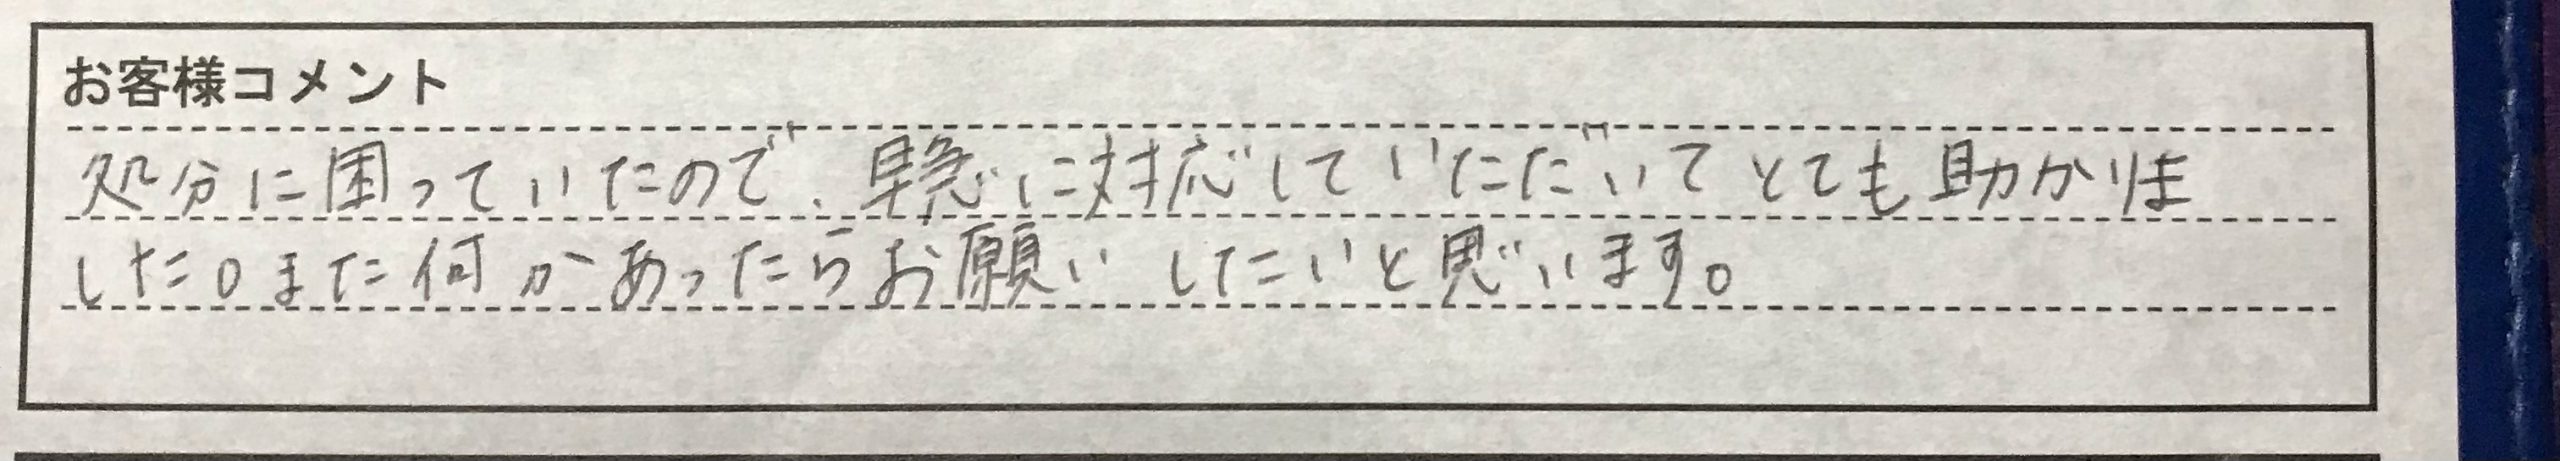 お客様コメント
処分に困っていたので、早急に対応していただいてとても助かりま
した。また何かあったらお願いしたいと思います。